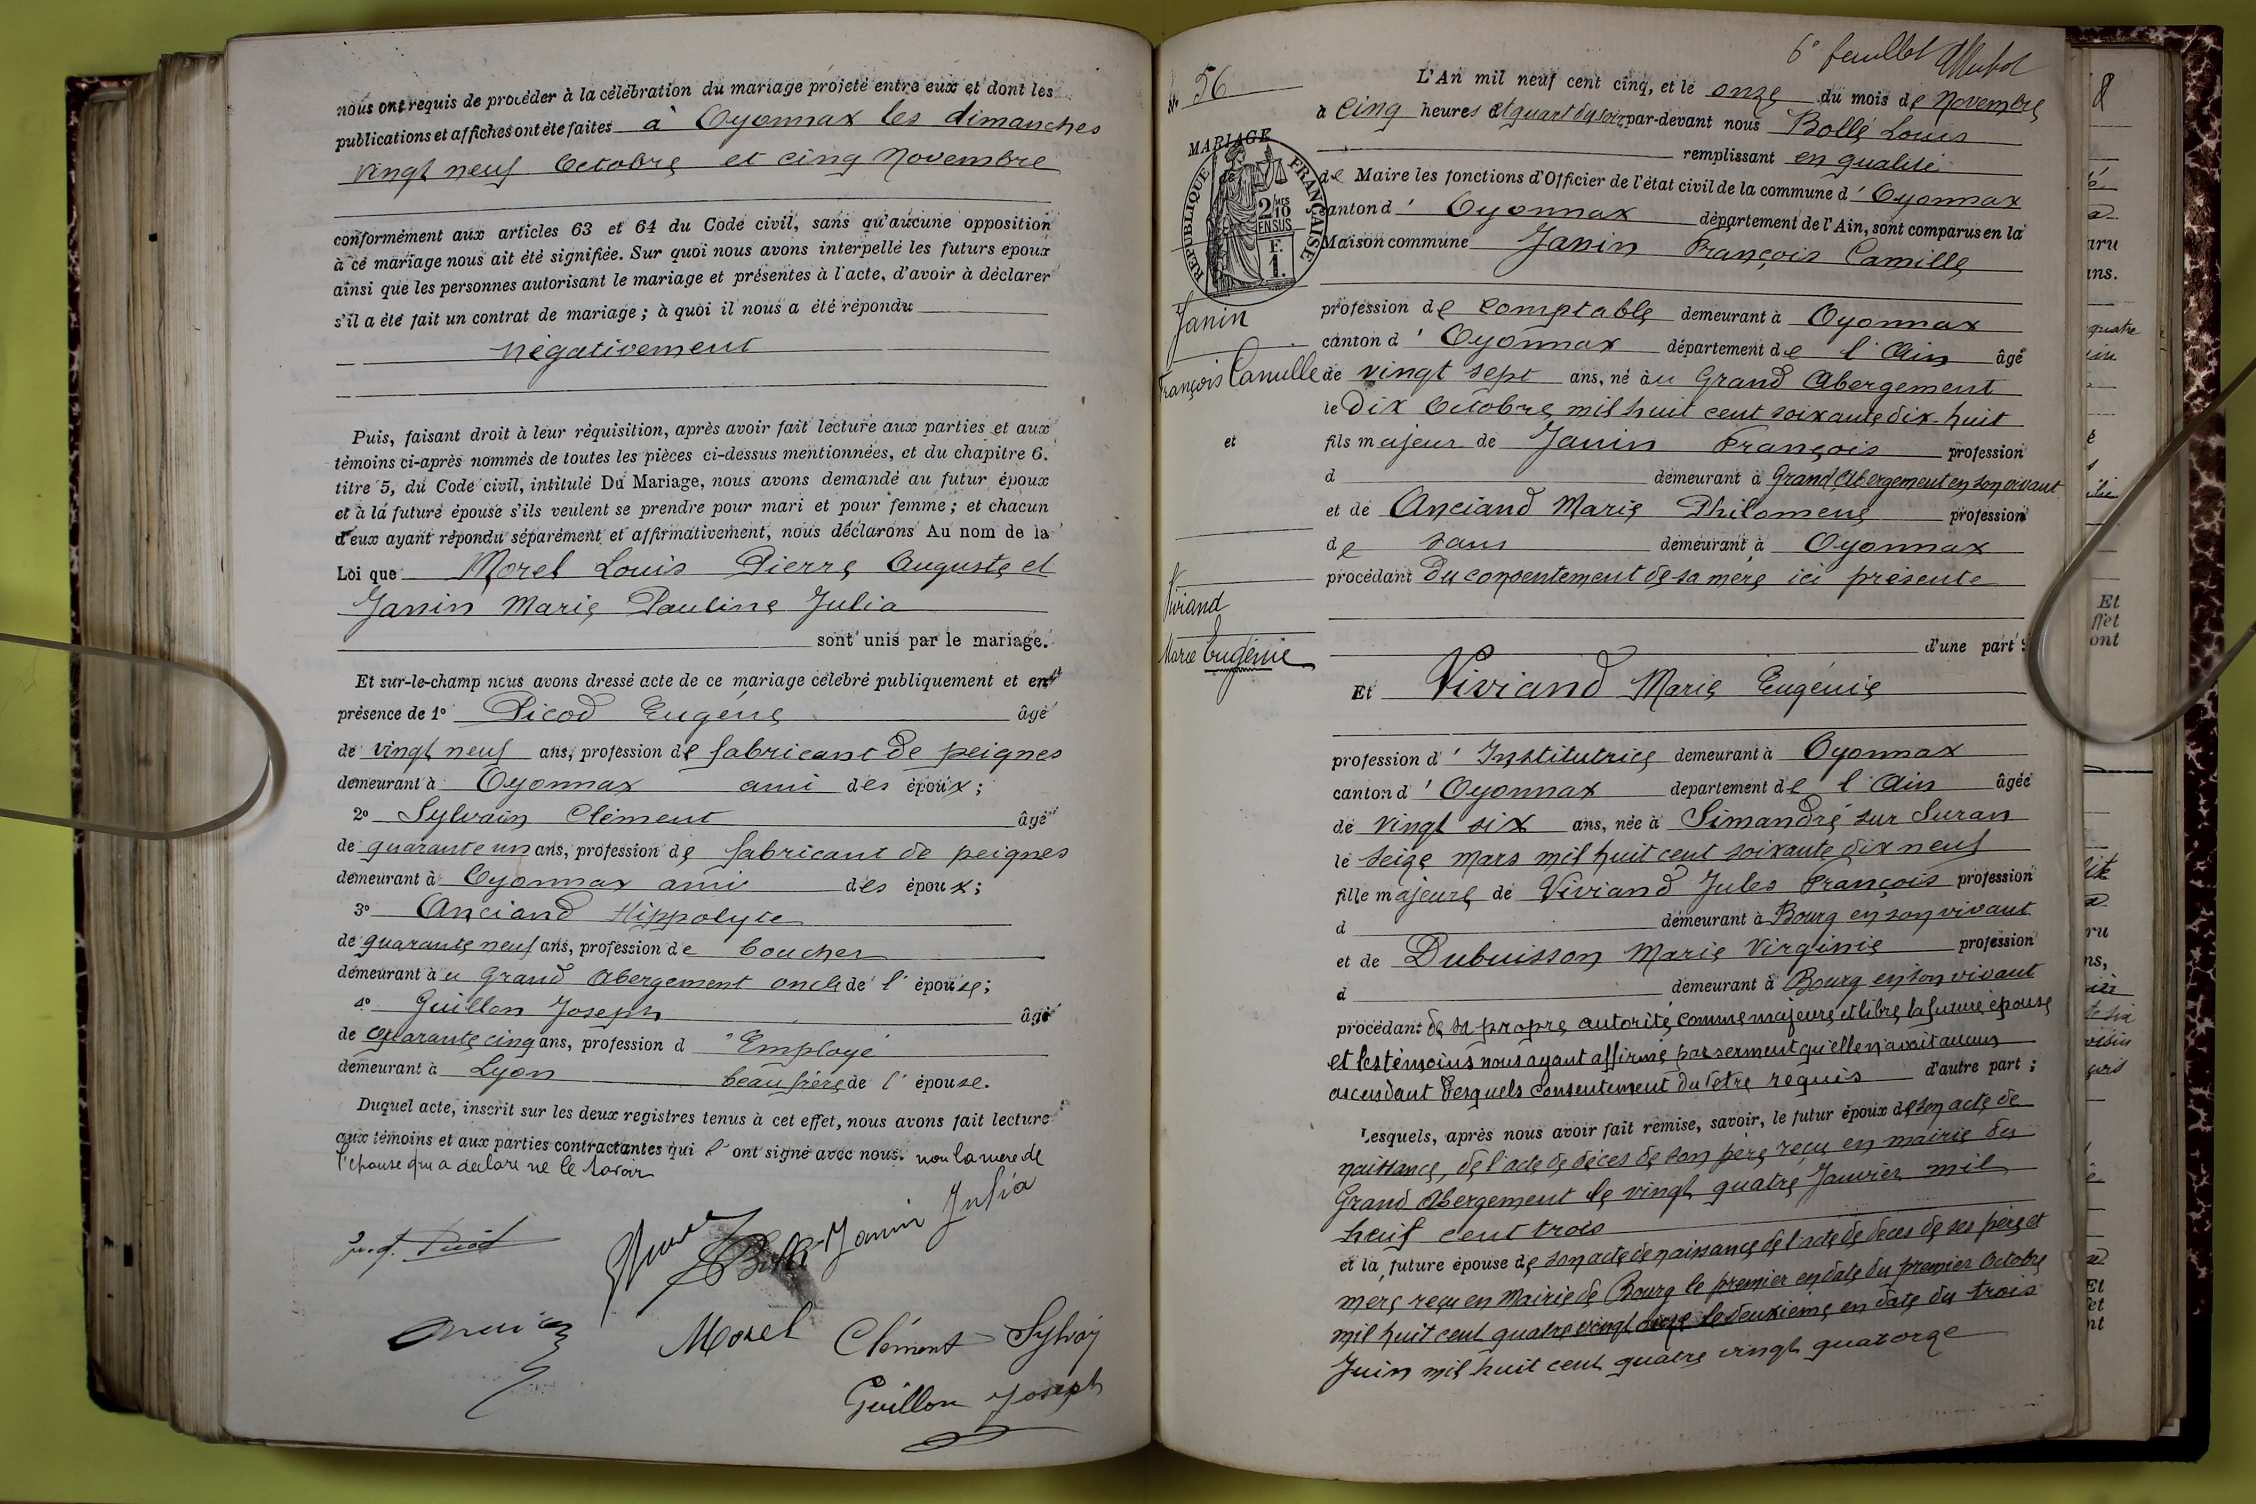 nous ont requis de procéder à la célébration du mariage projeté entre eux et dont les
publications et affiches ont été faites à Oyonnax les dimanches
vingt neuf Octobre et cinq Novembre
conformément aux articles 63 et 64 du Code civil, sans qu'aucune opposition
à ce mariage nous ait été signifiée. Sur quoi nous avons interpellé les futurs époux
ainsi que les personnes autorisant le mariage et présentes à l'acte, d'avoir à déclarer
s'il a été fait un contrat de mariage ; à quoi il nous a été répondu
négativement
Puis, faisant droit à leur réquisition, après avoir fait lecture aux parties et aux
témoins ci-après nommés de toutes les pièces ci-dessus mentionnées, et du chapitre 6.
titre 5, du Code civil, intitulé Du Mariage, nous avons demandé au futur époux
et à la future épouse s'ils veulent se prendre pour mari et pour femme ; et chacun
d'eux ayant répondu séparément et affirmativement, nous déclarons Au nom de la
Loi que Morel Louis Pierre Auguste et
Janin Marie Pauline Julia
sont unis par le mariage.
Et sur-le-champ nous avons dressé acte de ce mariage célébré publiquement et en
présence de 1° Picod Eugène âgé
de vingt neuf ans, profession de fabricant de peignes
demeurant à Oyonnax ami des époux ;
2° Sylvain Clément âgé
de quarante un ans, profession de fabricant de peignes
demeurant à Oyonnax ami des époux ;
3° Anciand Hippolyte
de quarante neuf ans, profession de boucher
demeurant à u Grand Abergement oncle de l' épouse ;
4° Guillon Joseph âgé
de quarante cinq ans, profession d 'Employé
demeurant à Lyon beau frère de l' épouse.
Duquel acte, inscrit sur les deux registres tenus à cet effet, nous avons fait lecture
aux témoins et aux parties contractantes qui l' ont signé avec nous. non la mère de
l'épouse qui a déclaré ne le savoir
Janin Julia
Morel Clément Sylvain
Guillon Joseph
6e feuillet
N° 56
MARIAGE
RÉPUBLIQUE FRANÇAISE
2/10 EN SUS
F. 1.
Janin
François Camille
et
Viviand
Marie Eugénie
L'An mil neuf cent cinq, et le onze du mois de Novembre
à cinq heures et quart du soir par-devant nous Bollé Louis
remplissant en qualité
de Maire les fonctions d'Officier de l'état civil de la commune d' Oyonnax
canton d' Oyonnax département de l'Ain, sont comparus en la
Maison commune Janin François Camille
profession de comptable demeurant à Oyonnax
canton d' Oyonnax département de l'Ain âgé
de vingt sept ans, né au Grand Abergement
le Dix Octobre mil huit cent soixante dix-huit
fils majeur de Janin François profession
d demeurant à Grand Abergement en son vivant
et de Anciand Marie Philomène profession
de sans demeurant à Oyonnax
procédant du consentement de sa mère ici présente
d'une part ;
Et Viviand Marie Eugénie
profession d' Institutrice demeurant à Oyonnax
canton d' Oyonnax département de l'Ain âgée
de vingt six ans, née à Simandre sur Suran
le seize mars mil huit cent soixante dix neuf
fille majeure de Viviand Jules François profession
d demeurant à Bourg en son vivant
et de Dubuisson Marie Virginie profession
d demeurant à Bourg en son vivant
procédant de sa propre autorité comme majeure et libre la future épouse
et les témoins nous ayant affirmé par serment qu'elle n'avait aucun
ascendant desquels consentement du l'etre requis d'autre part ;
Lesquels, après nous avoir fait remise, savoir, le futur époux de son acte de
naissance, de l'acte de décès de son père reçu en mairie du
Grand Abergement le vingt quatre Janvier mil
neuf cent trois
et la future épouse de son acte de naissance de l'acte de décès de ses père et
mère reçu en Mairie de Bourg le premier en date du premier Octobre
mil huit cent quatre vingt onze le deuxième en date du trois
Juin mil huit cent quatre vingt quatorze